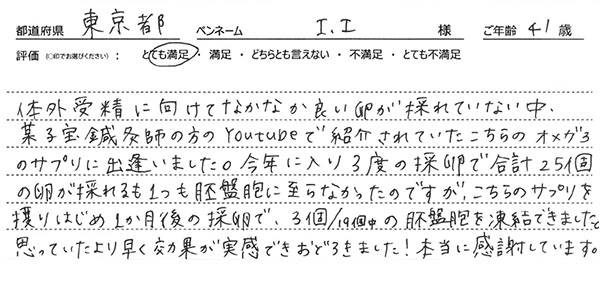 都道府県 東京都 ペンネーム I.I 様 ご年齢 41歳
評価(○印でお選びください): とても満足・満足・どちらとも言えない・不満足・とても不満足
体外受精に向けてなかなか良い卵が採れていない中、
某子宝鍼灸師の方のYoutubeで紹介されていたこちらのオメガ3
のサプリに出逢いました。今年に入り3度の採卵で合計25個
の卵が採れるも1つも胚盤胞に至らなかったのですが、こちらのサプリを
摂りはじめ1か月後の採卵で、3個/19個中の胚盤胞を凍結できました。
思っていたより早く効果が実感できおどろきました!本当に感謝しています。